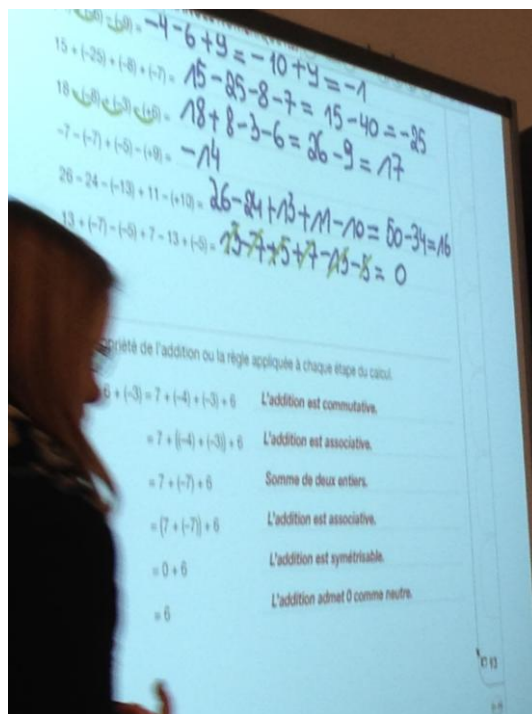 = -4-6+9 = -10+9 = -1
15 + (-25) + (-8) + (-7) = 15-25-8-7 = 15-40 = -25
18 - (-8) + (-3) - (+6) = 18+8-3-6 = 26-9 = 17
-7 - (-7) + (-5) - (+9) = -14
26 - 24 - (-13) + 11 - (+10) = 26-24+13+11-10 = 50-34=16
13 + (-7) - (-5) + 7 - 13 + (-5) = 13-7+5+7-13-5 = 0
de l'addition ou la règle appliquée à chaque étape du calcul.
6 + (-3) = 7 + (-4) + (-3) + 6 L'addition est commutative.
= 7 + [(-4) + (-3)] + 6 L'addition est associative.
= 7 + (-7) + 6 Somme de deux entiers.
= [7 + (-7)] + 6 L'addition est associative.
= 0 + 6 L'addition est symétrisable.
= 6 L'addition admet 0 comme neutre.